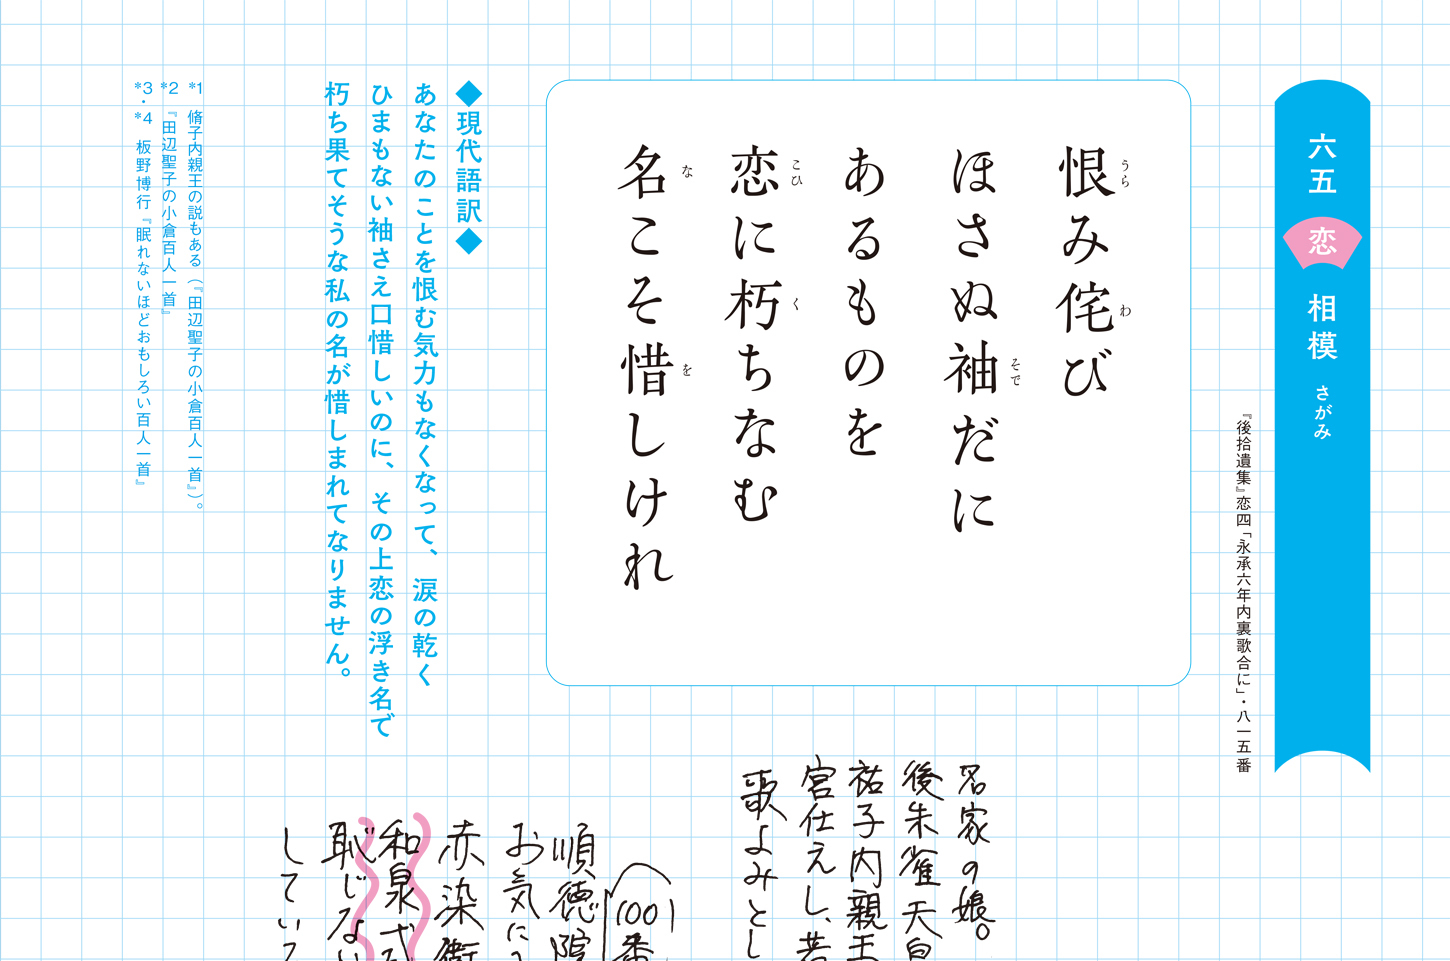 六五 恋 相模 さがみ
『後拾遺集』恋四「永承六年内裏歌合に」・八一五番
恨み侘び
うら わ
ほさぬ袖だに
そで
あるものを
恋に朽ちなむ
こひ く
名こそ惜しけれ
な を
◆現代語訳◆
あなたのことを恨む気力もなくなって、涙の乾く
ひまもない袖さえ口惜しいのに、その上恋の浮き名で
朽ち果てそうな私の名が惜しまれてなりません。
*1 脩子内親王の説もある(『田辺聖子の小倉百人一首』)。
*2 『田辺聖子の小倉百人一首』
*3・*4 板野博行『眠れないほどおもしろい百人一首』
名家の娘。
後朱雀天皇
祐子内親王
宮仕えし、若
歌よみとし
(100)
番
順徳院
お気に
赤染衛
和泉式
恥じない
してい